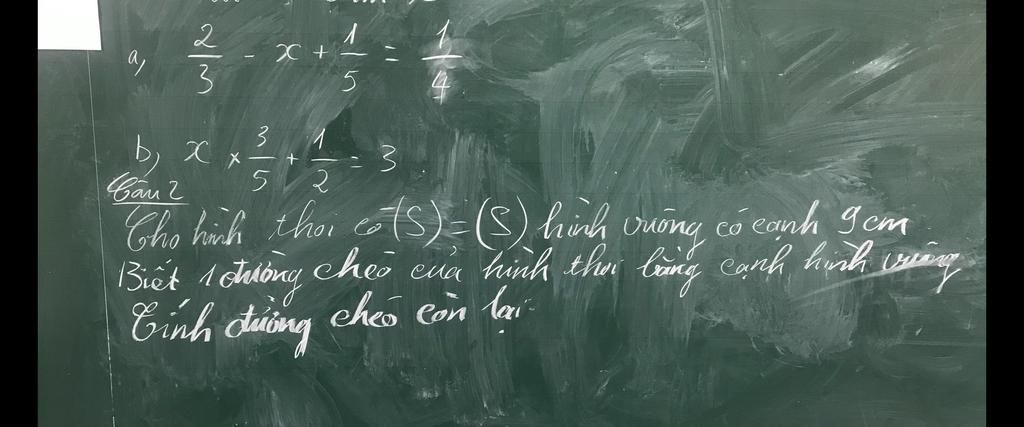 a, 2/3 - x + 1/5 = 1/4
b, x × 3/5 + 1/2 = 3
Câu 2
Cho hình thoi có (S) = (S) hình vuông có cạnh 9 cm
Biết 1 đường chéo của hình thoi bằng cạnh hình vuông
Tính đường chéo còn lại.